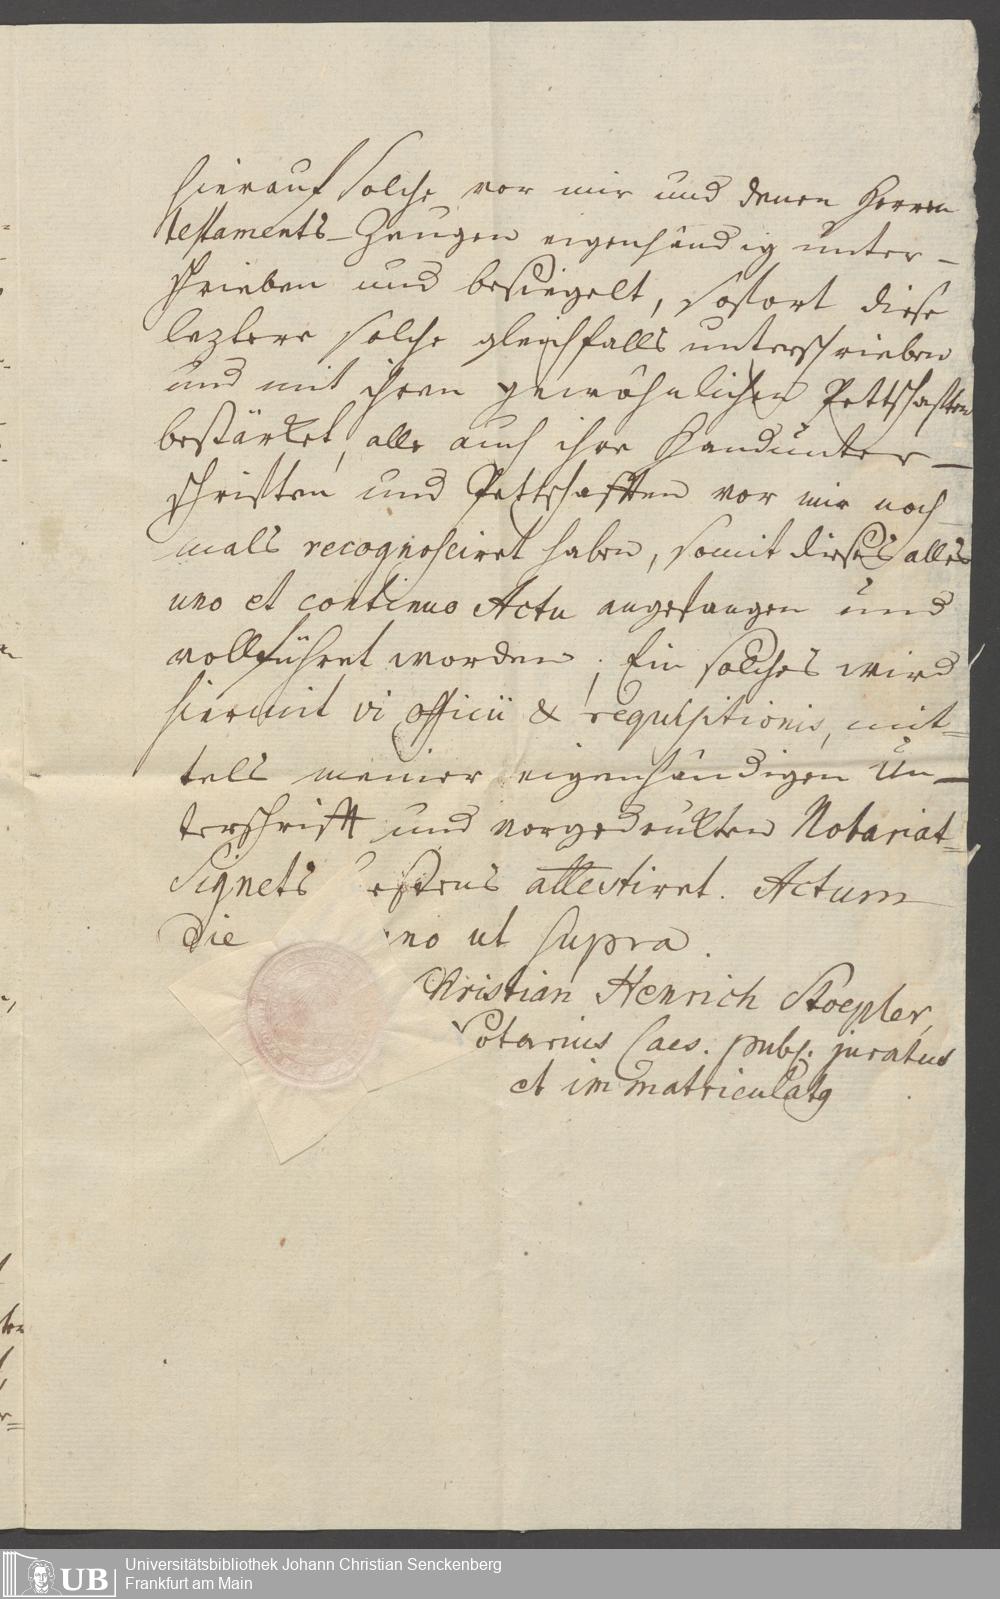 hierauf solche vor mir und denen Herren
testaments-Zeugen eigenhändig unter-
schrieben und besiegelt, sofort diese
leztere solche gleichfalls unterschrieben
und mit ihren gewöhnlichen Pettschafften
bestärket, alle auch ihre Handunter-
schriften und Pettschafften vor mir noch-
mals recognosciret haben, somit dieses alles
uno et continuo Actu angefangen und
vollführet worden; Ein solches wird
hiermit vi officii & requisitionis, mit=
tels meiner eigenhändigen Un-
terschrifft und vorgedrukten Notariat=
Signets bestens attestiret. Actum
die no ut supra.
Christian Henrich Stoepler,
Notarius Caes. publ. juratus
et immatriculatq
Universitätsbibliothek Johann Christian Senckenberg
Frankfurt am Main
UB